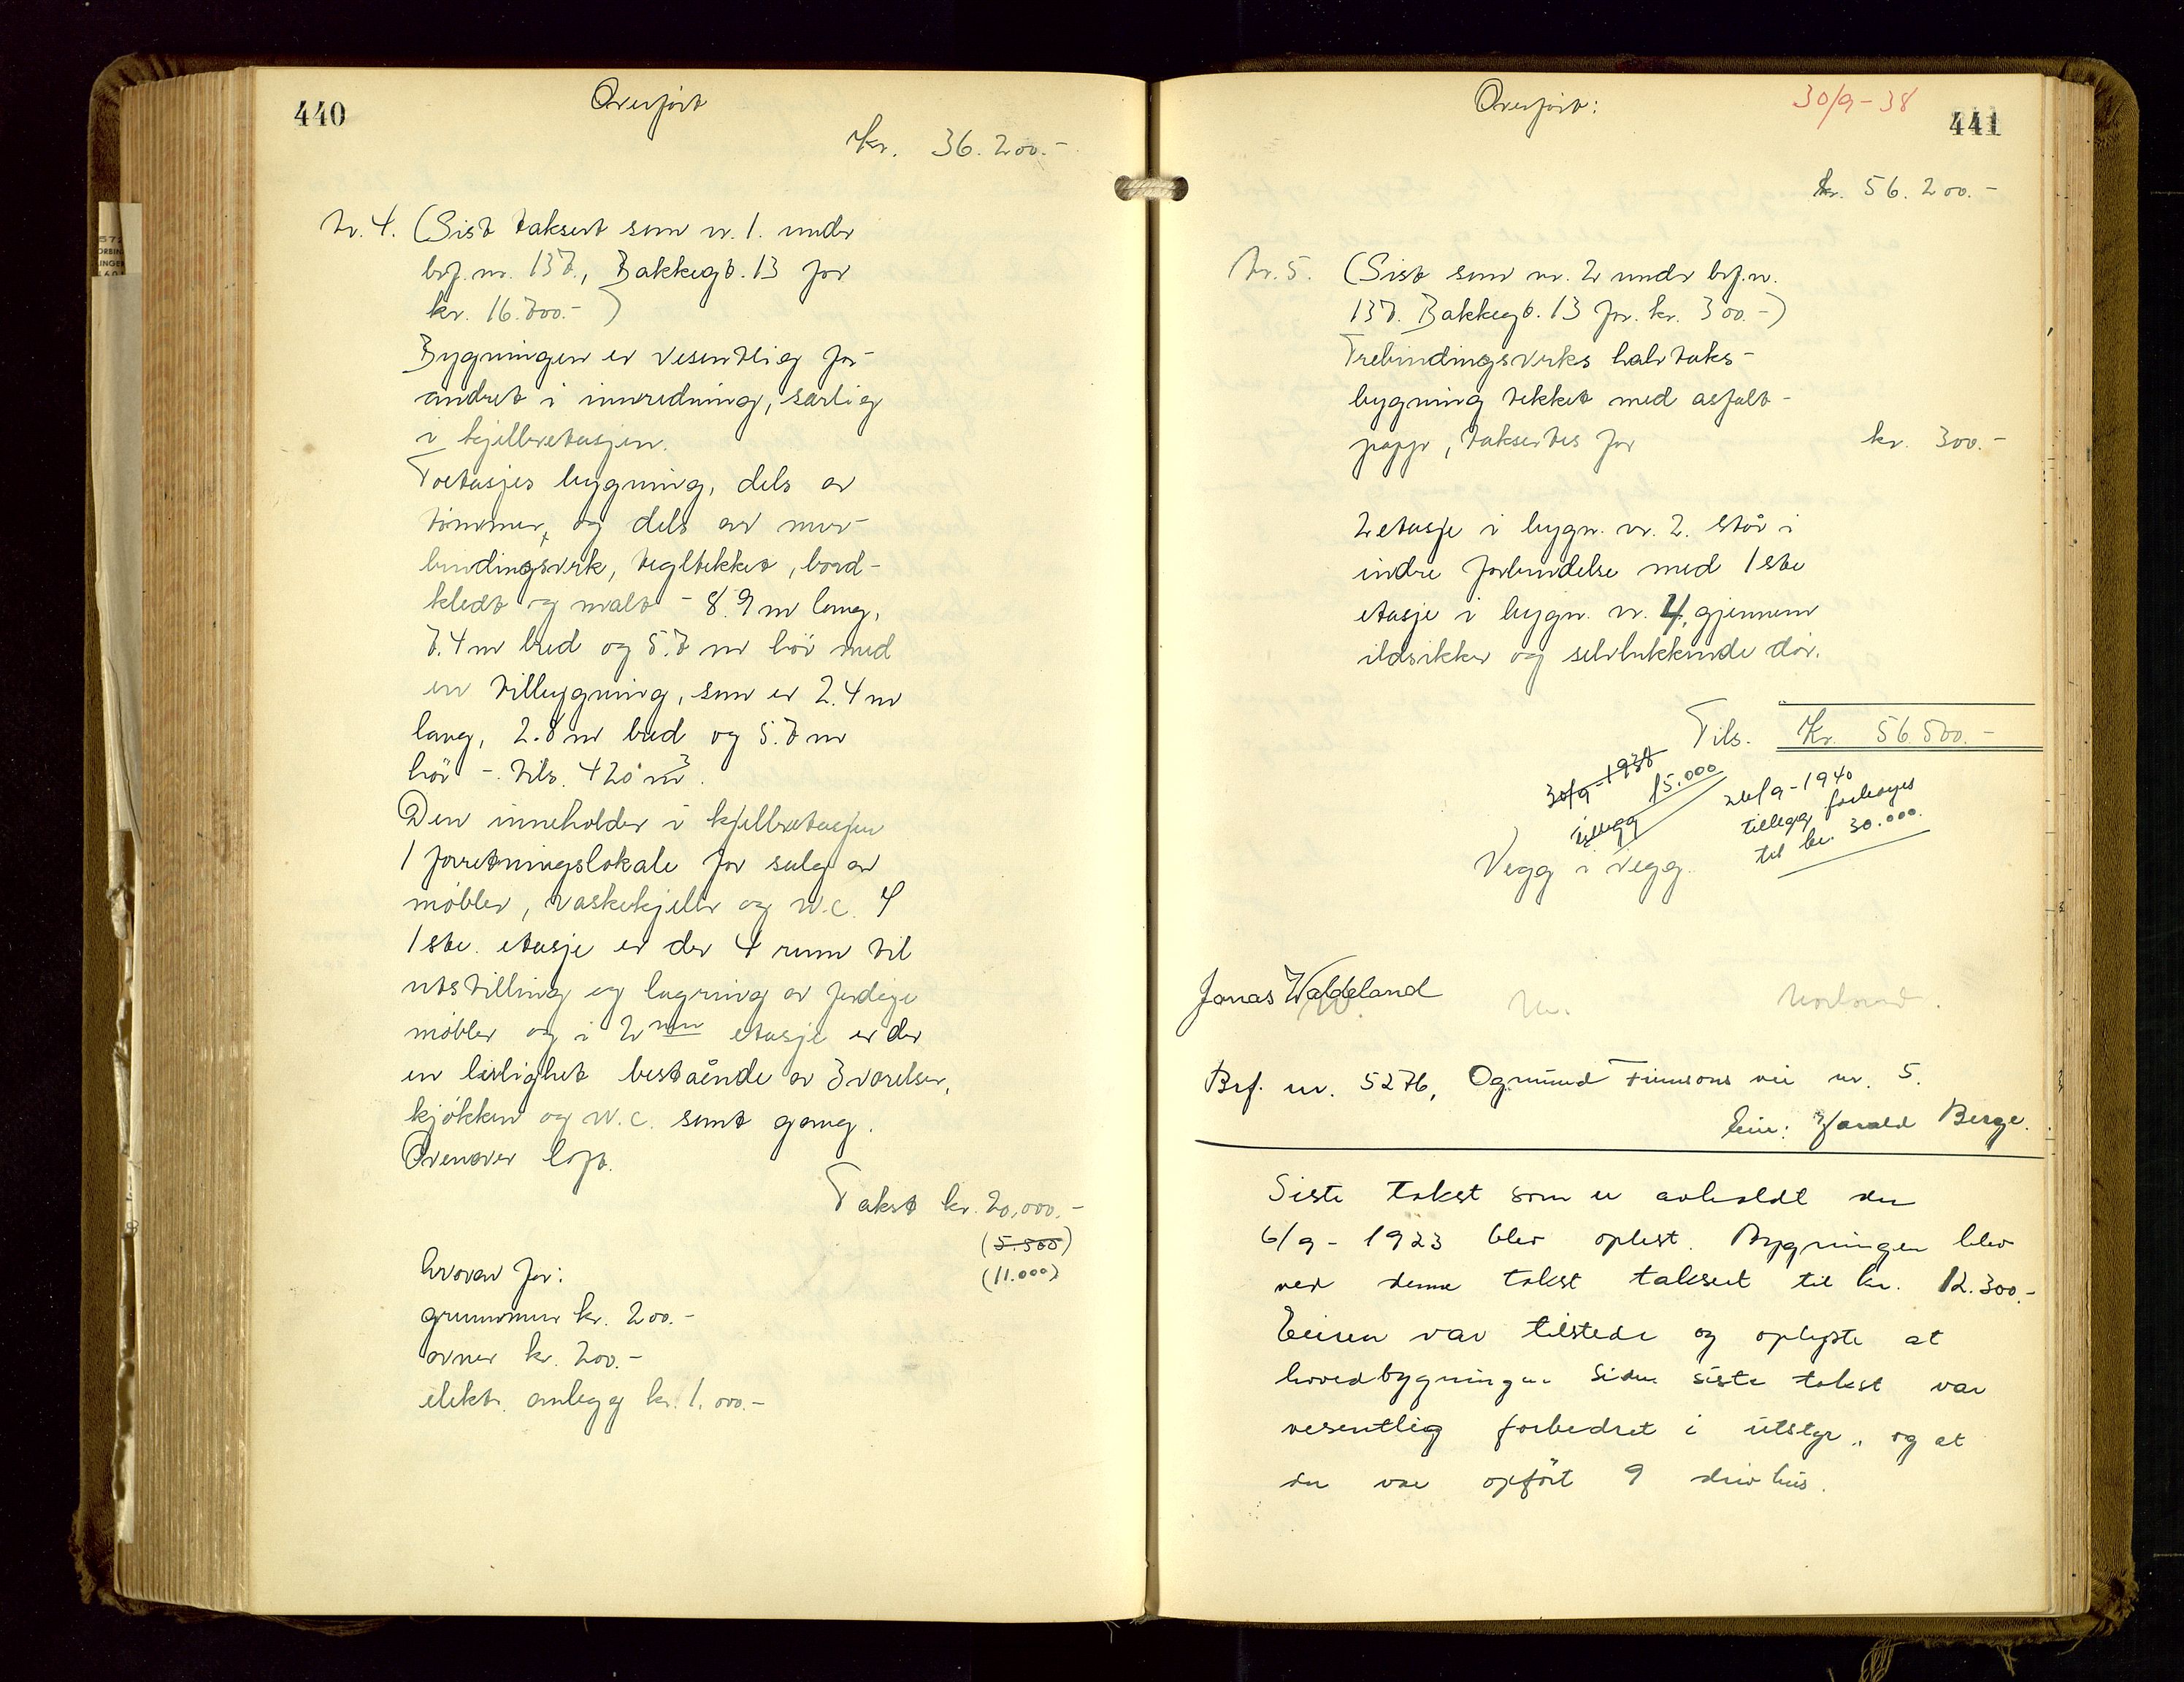 440
Overført
Kr. 36.200.-
Nr. 4. (Sist taksert som nr. 1. under
brf. nr. 137, Bakkegt. 13 for
kr. 16.700.-)
Bygningen er vesentlig for-
andret i innredning, særlig
i kjelleretasjen.
Toetasjes bygning, dels av
tømmer, og dels av mur-
bindingsverk, tegltekket, bord-
kledt og malt - 8.9 m lang,
7.4 m bred og 5.7 m høi med
en tilbygning, som er 2.4 m
lang, 2.8 m bred og 5.7 m
høi -. tils. 420 m³.
Den inneholder i kjelleretasjen
1 forretningslokale for salg av
møbler, vaskekjeller og w.c. I
1ste. etasje er der 4 rum til
utstilling og lagring av ferdige
møbler og i 2nen etasje er der
en leilighet bestående av 3 værelser,
kjøkken og w.c. samt gang.
Ovenover loft.
Takst kr. 20.000.-
(5.500)
(11.000)
hvorav for:
grunnmur kr. 200.-
ovner kr. 200.-
elektr. anlegg kr. 1.000.-
Overført:
30/9-38
441
kr. 56.200.-
Nr. 5. (Sist som nr. 2 under brf. nr.
137. Bakkegt. 13 for kr. 300.-)
Trebindingsverks halvtaks-
bygning tekket med asfalt-
papp, taksertes for kr. 300.-
2 etasje i bygn. nr. 2. står i
indre forbindelse med 1ste
etasje i bygn. nr. 4, gjennem
ildsikker og selvlukkende dør.
Tils. Kr. 56.500.-
30/9-1938
tillegg 15.000
26/9-1940
tillegg forhøyes
til kr. 30.000.
Vegg i vegg.
Jonas Waldeland
Brf. nr. 5276, Ogmund Finnsons vei nr. 5.
Eier: Harald Berge.
Siste takst som er avholdt den
6/9-1923 blev oplest. Bygningen blev
ved denne takst taksert til kr. 12.300.-
Eieren var tilstede og oplyste at
hovedbygningen siden siste takst var
vesentlig forbedret i utstyr, og at
der var opført 9 drivhus.